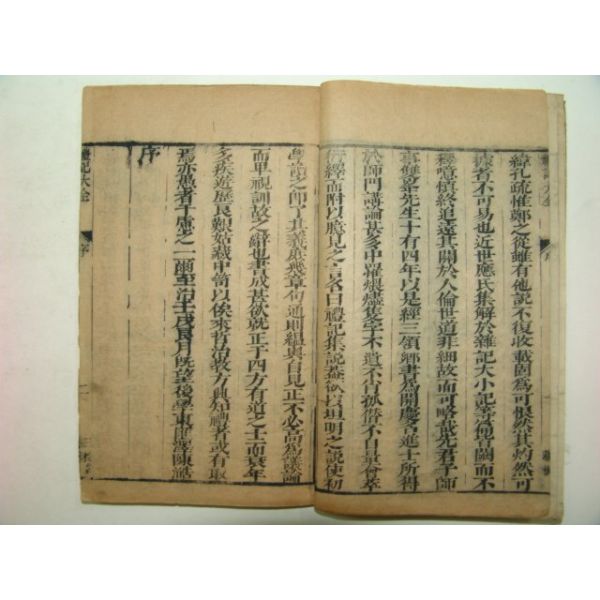 緯孔疏惟鄭之從雖有他說不復收載固為可恨然其灼然可
據者不可易也近世應氏集解於雜記大小記等篇皆闕而不
釋噫慎終追遠其關於人倫世道非細故而可略哉先君子師
事雙峯先生十有四年以是經三領鄉書為開慶名進士所得
於師門講論甚多中罹煨燼隻字不遺不肖孤僭不自量會萃
衍繹而附以臆見之言名曰禮記集說蓋欲以坦明之說使初
學讀之即了其義庶幾章句通則縕奧自見正不必高為議論
而卑視訓故之辭也書成甚欲就正于四方有道之士而衰年
多疾遊歷良艱姑藏巾笥以俟來哲治教方興知禮者或有取
焉亦愚者千慮之一爾至治壬戌良月既望後學東匯澤陳澔
序
禮記大全 序